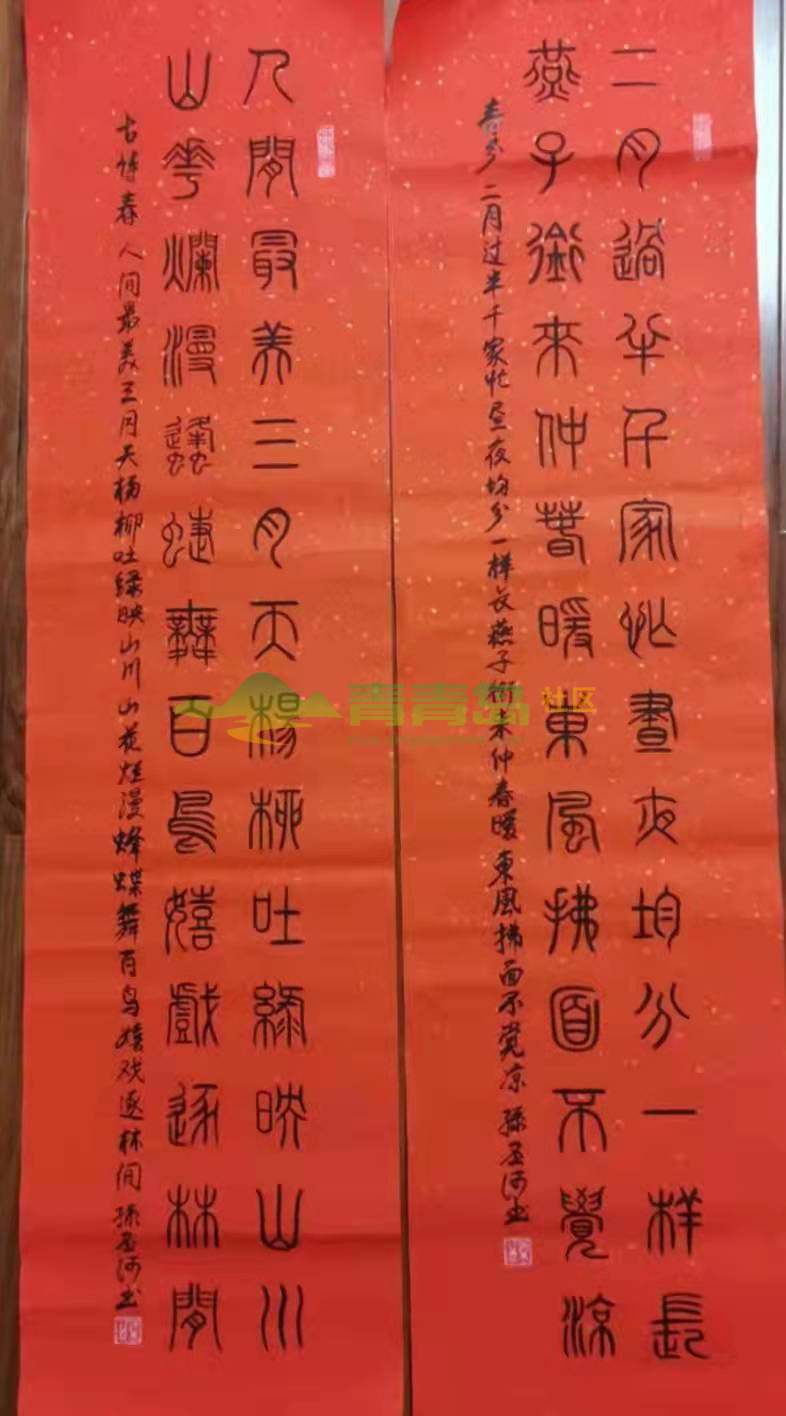 二月過半千家忙晝夜均分一样長
燕子銜來仲春暖東風拂面不覺涼
春分 二月过半千家忙昼夜均分一样长燕子衔来仲春暖東風拂面不觉凉 孫
人間最美三月天楊柳吐綠映山川
山花爛漫蜂蝶舞百鳥嬉戲逐林間
春 人间最美三月天杨柳吐绿映山川山花烂漫蜂蝶舞百鸟嬉戏逐林间 孫
青青岛社区